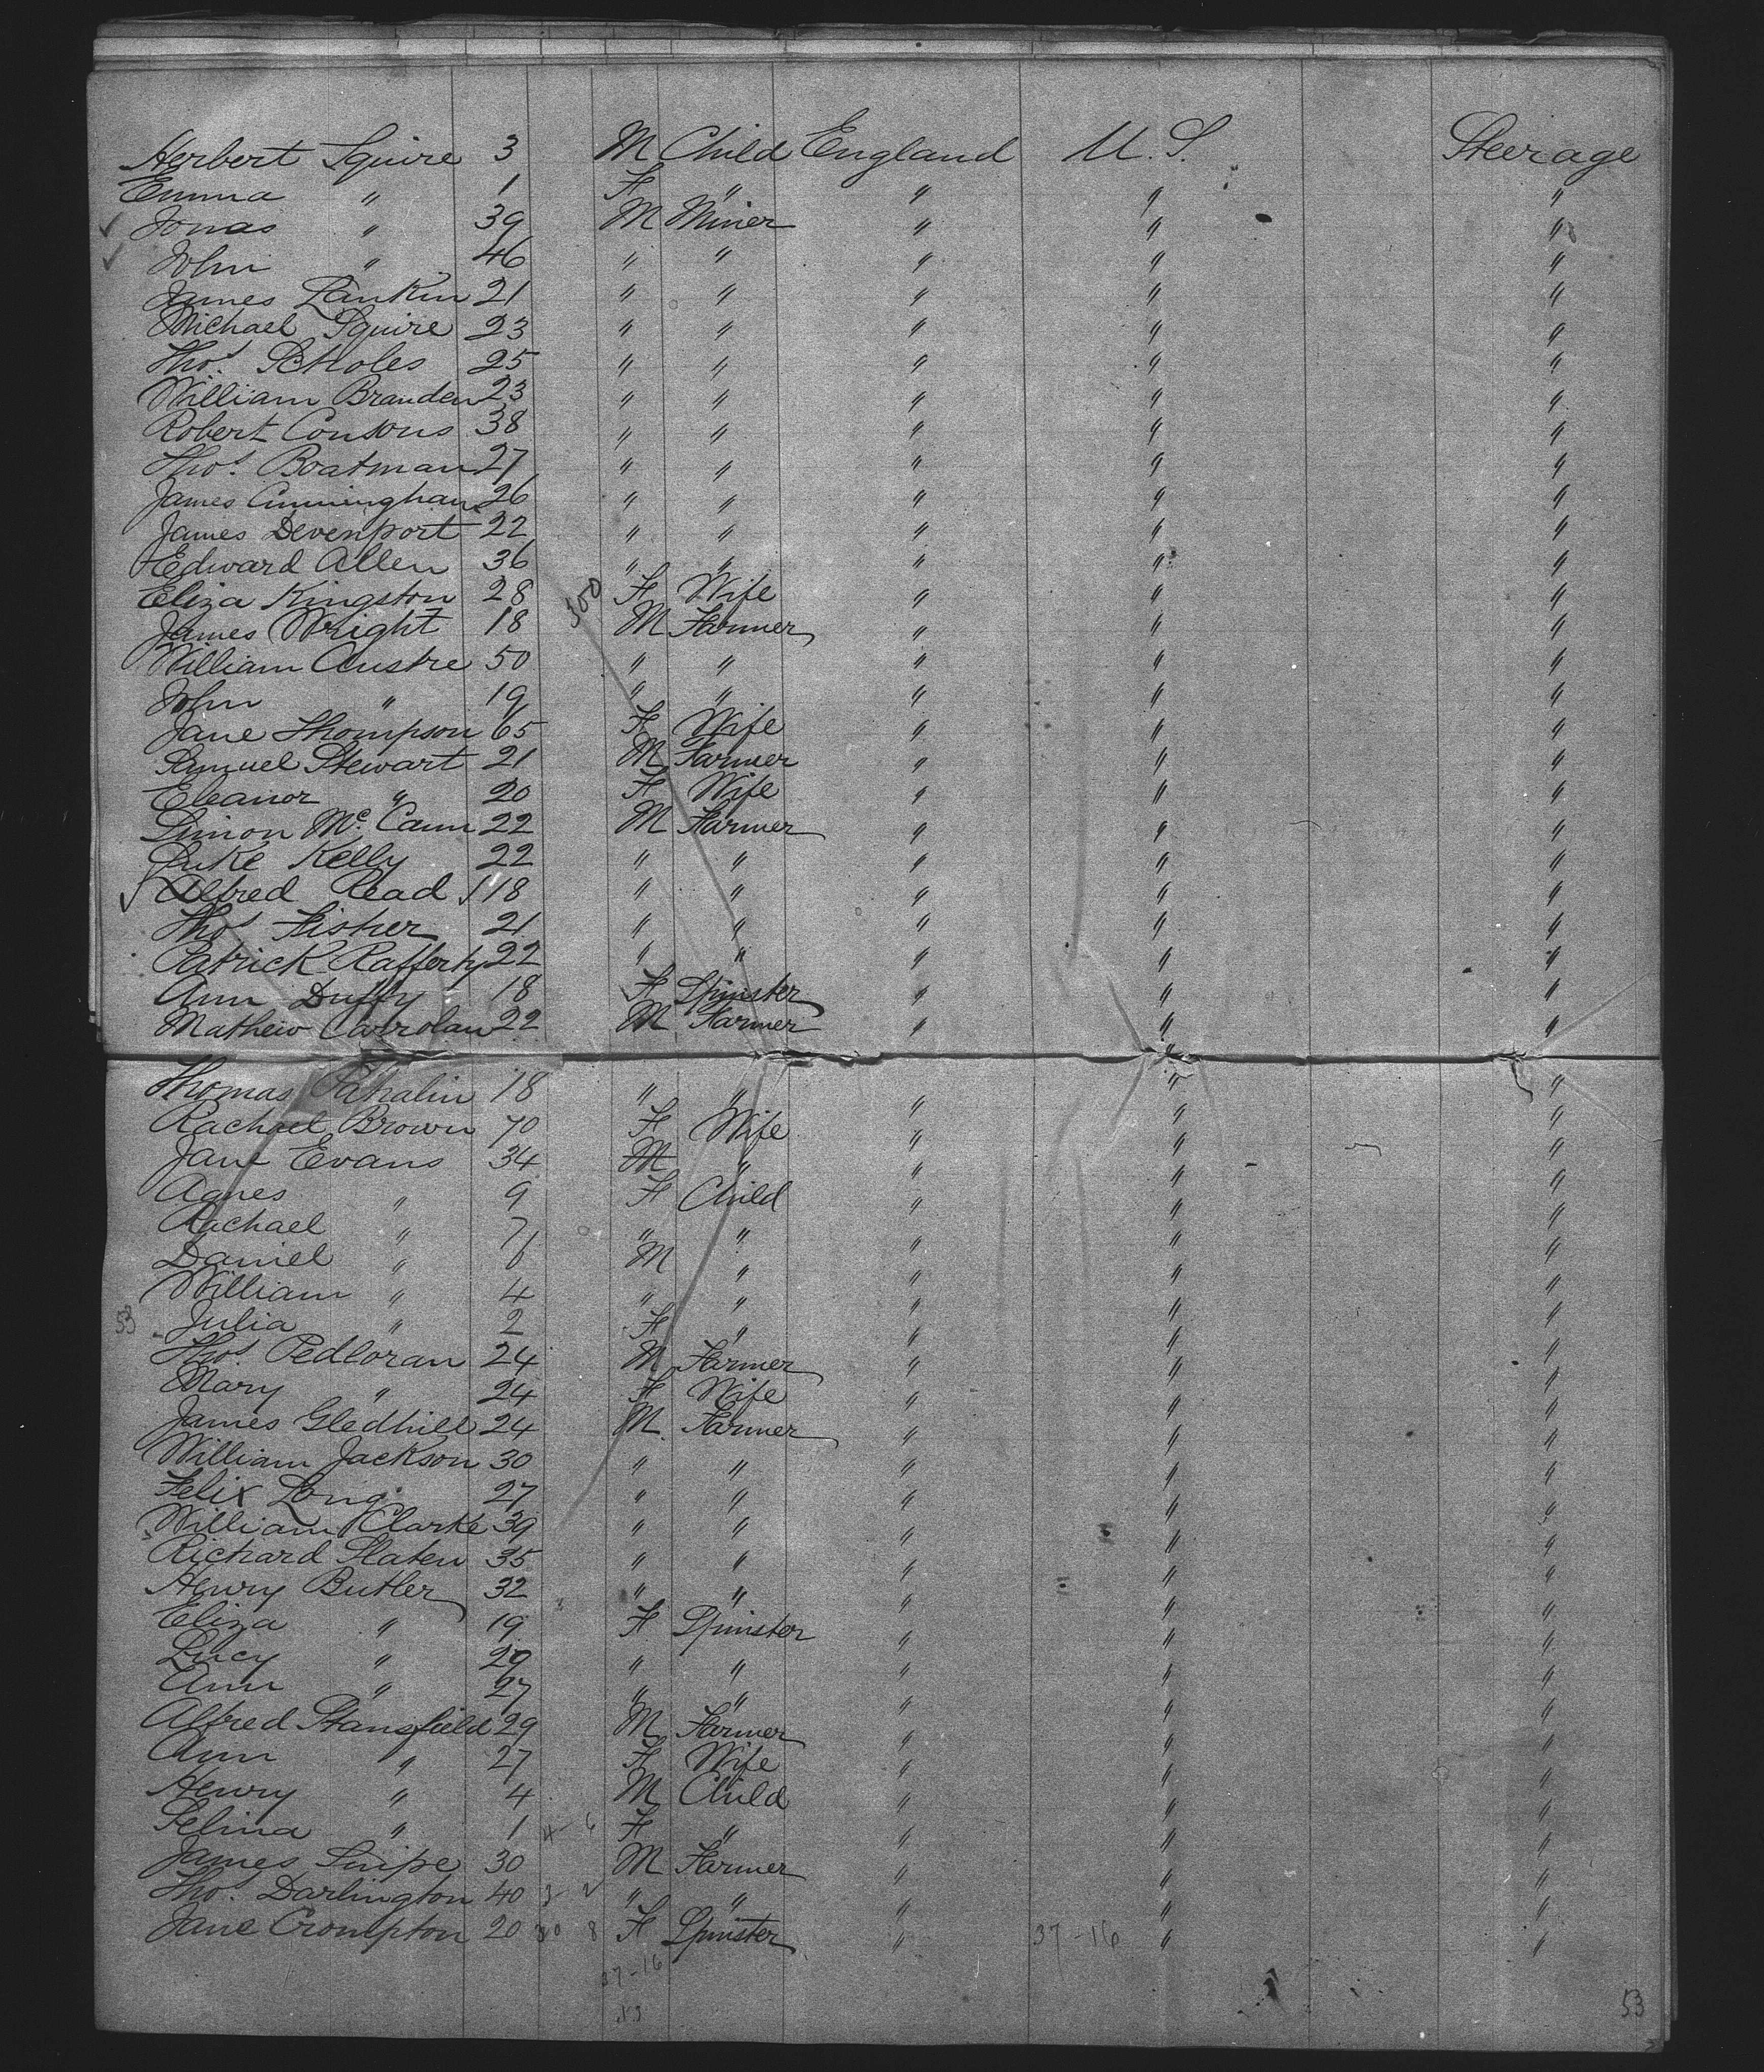 Herbert Squire 3 M Child England U.S. Steerage
Emma " 1 F " " " "
Jonas " 39 M Miner " " "
John " 46 " " " " "
James Rankin 21 " " " " "
Michael Squire 23 " " " " "
Thos. Scholes 25 " " " " "
William Branden 23 " " " " "
Robert Consons 38 " " " " "
Thos. Boatman 27 " " " " "
James Cunningham 26 " " " " "
James Devenport 22 " " " " "
Edward Allen 36 " " " " "
Eliza Kingston 28 300 F Wife " " "
James Wright 18 M Farmer " " "
William Austre 50 " " " " "
John " 19 " " " " "
Jane Thompson 65 F Wife " " "
Samuel Stewart 21 M Farmer " " "
Eleanor " 20 F Wife " " "
Simon McCann 22 M Farmer " " "
Luke Kelly 22 " " " " "
Alfred Read 18 " " " " "
Thos Fisher 21 " " " " "
Patrick Rafferty 22 " " " " "
Ann Duffy 18 F Spinster " " "
Mathew Carrolan 22 M Farmer " " "
Thomas 18 " " " " "
Rachael Brown 70 F Wife " " "
Jane Evans 34 M " " " "
Agnes " 9 F Child " " "
Rachael " 7 " " " " "
Daniel " 6 M " " " "
William " 4 " " " " "
53 Julia " 2 F " " " "
Thos. Pedloran 24 M Farmer " " "
Mary " 24 F Wife " " "
James Gledhill 24 M Farmer " " "
William Jackson 30 " " " " "
Felix Long 27 " " " " "
William Clarke 39 " " " " "
Richard Slaten 35 " " " " "
Henry Butler 32 " " " " "
Eliza " 19 F Spinster " " "
Lucy " 29 " " " " "
Ann " 27 " " " " "
Alfred Stansfield 29 M Farmer " " "
Ann " 27 F Wife " " "
Henry " 4 M Child " " "
Selina " 1 4 - 6 F " " " "
James Snipe 30 M Farmer " " "
Thos. Darlington 40 3 - 2 " " " " "
Jane Crompton 20 30 8 F Spinster " 37-16 " "
37-16
53